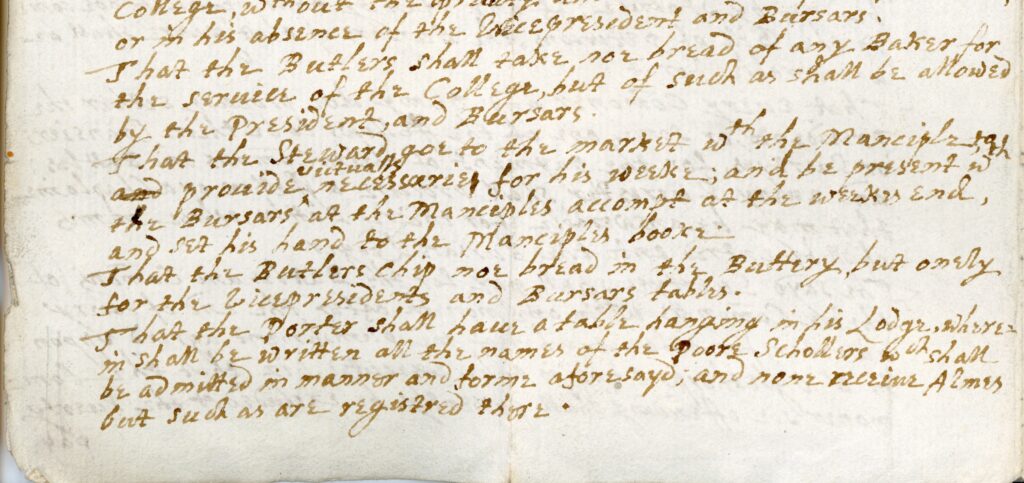 College, without the
or in his absence of the Vicepresident and Bursars.
That the Butlers shall take noe bread of any Baker for
the service of the College, but of such as shall be allowed
by the President, and Bursars.
That the Steward goe to the market wth the Manciple
and provide victualls necessaries for his weeke; and be present wth
the Bursars at the Manciples accompt at the weekes end,
and set his hand to the Manciples booke.
That the Butlers chip noe bread in the Buttery, but onely
for the Vicepresidents and Bursars tables.
That the Porter shall have a table hanging in his Lodge, where-
in shall be written all the names of the Poore Schollers wch shall
be admitted in manner and forme aforesayd; and none receive Almes
but such as are registred there.